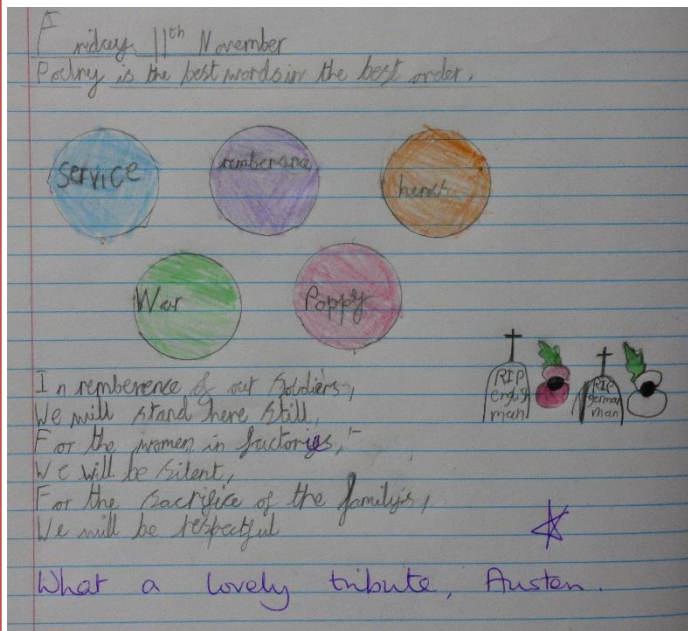 Friday 11th November
Poetry is the best words in the best order.
Service
rememberance
heroes
War
Poppy
RIP
english
man
RIP
german
man
In remberence of out soldiers,
We will stand here still,
For the women in factories,
We will be silent,
For the sacrifice of the family's,
We will be respectful
What a lovely tribute, Austen.